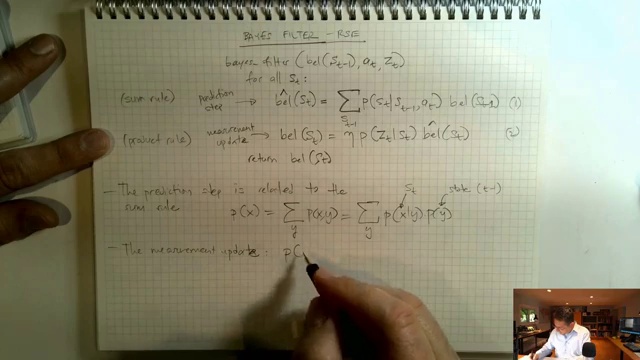 BAYES FILTER - RSE
bayes filter (bel(s_{t-1}), a_t, z_t)
for all s_t:
(sum rule) prediction step → bel̂(s_t) = ∑_{s_{t-1}} p(s_t|s_{t-1}, a_t) bel(s_{t-1}) (1)
(product rule) measurement update → bel(s_t) = η p(z_t|s_t) bel̂(s_t) (2)
return bel(s_t)
- The prediction step is related to the s_t state (t-1)
sum rule p(x) = ∑_y p(x,y) = ∑_y p(x|y) p(y)
- The measurement update: p(